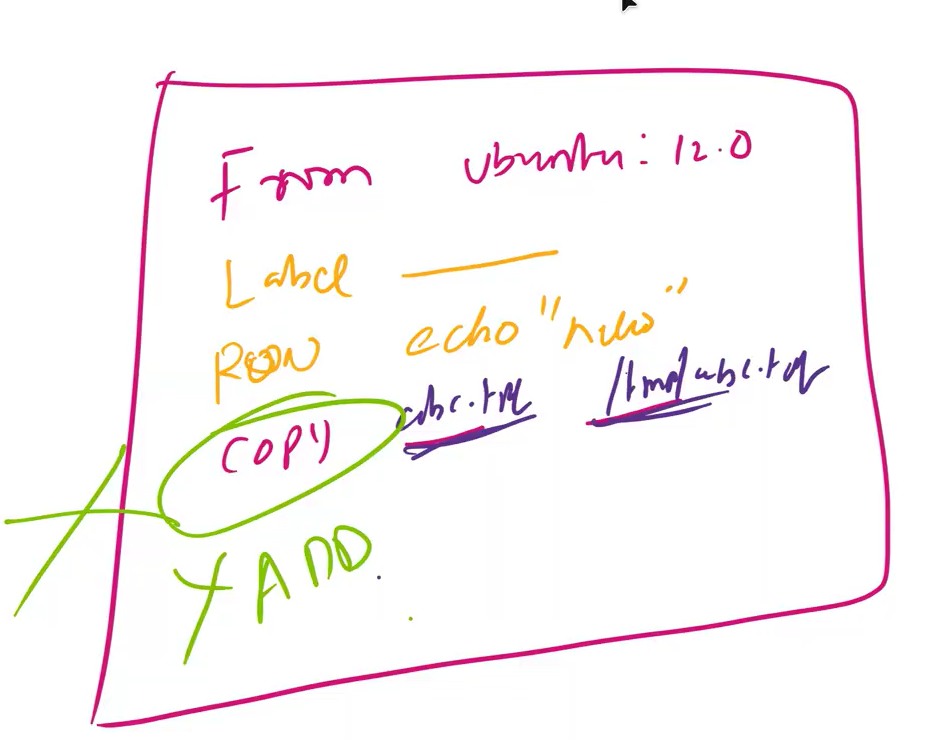 From ubuntu: 12.0
Label
RUN echo "hello"
COPY abc.txt /tmp/abc.txt
ADD